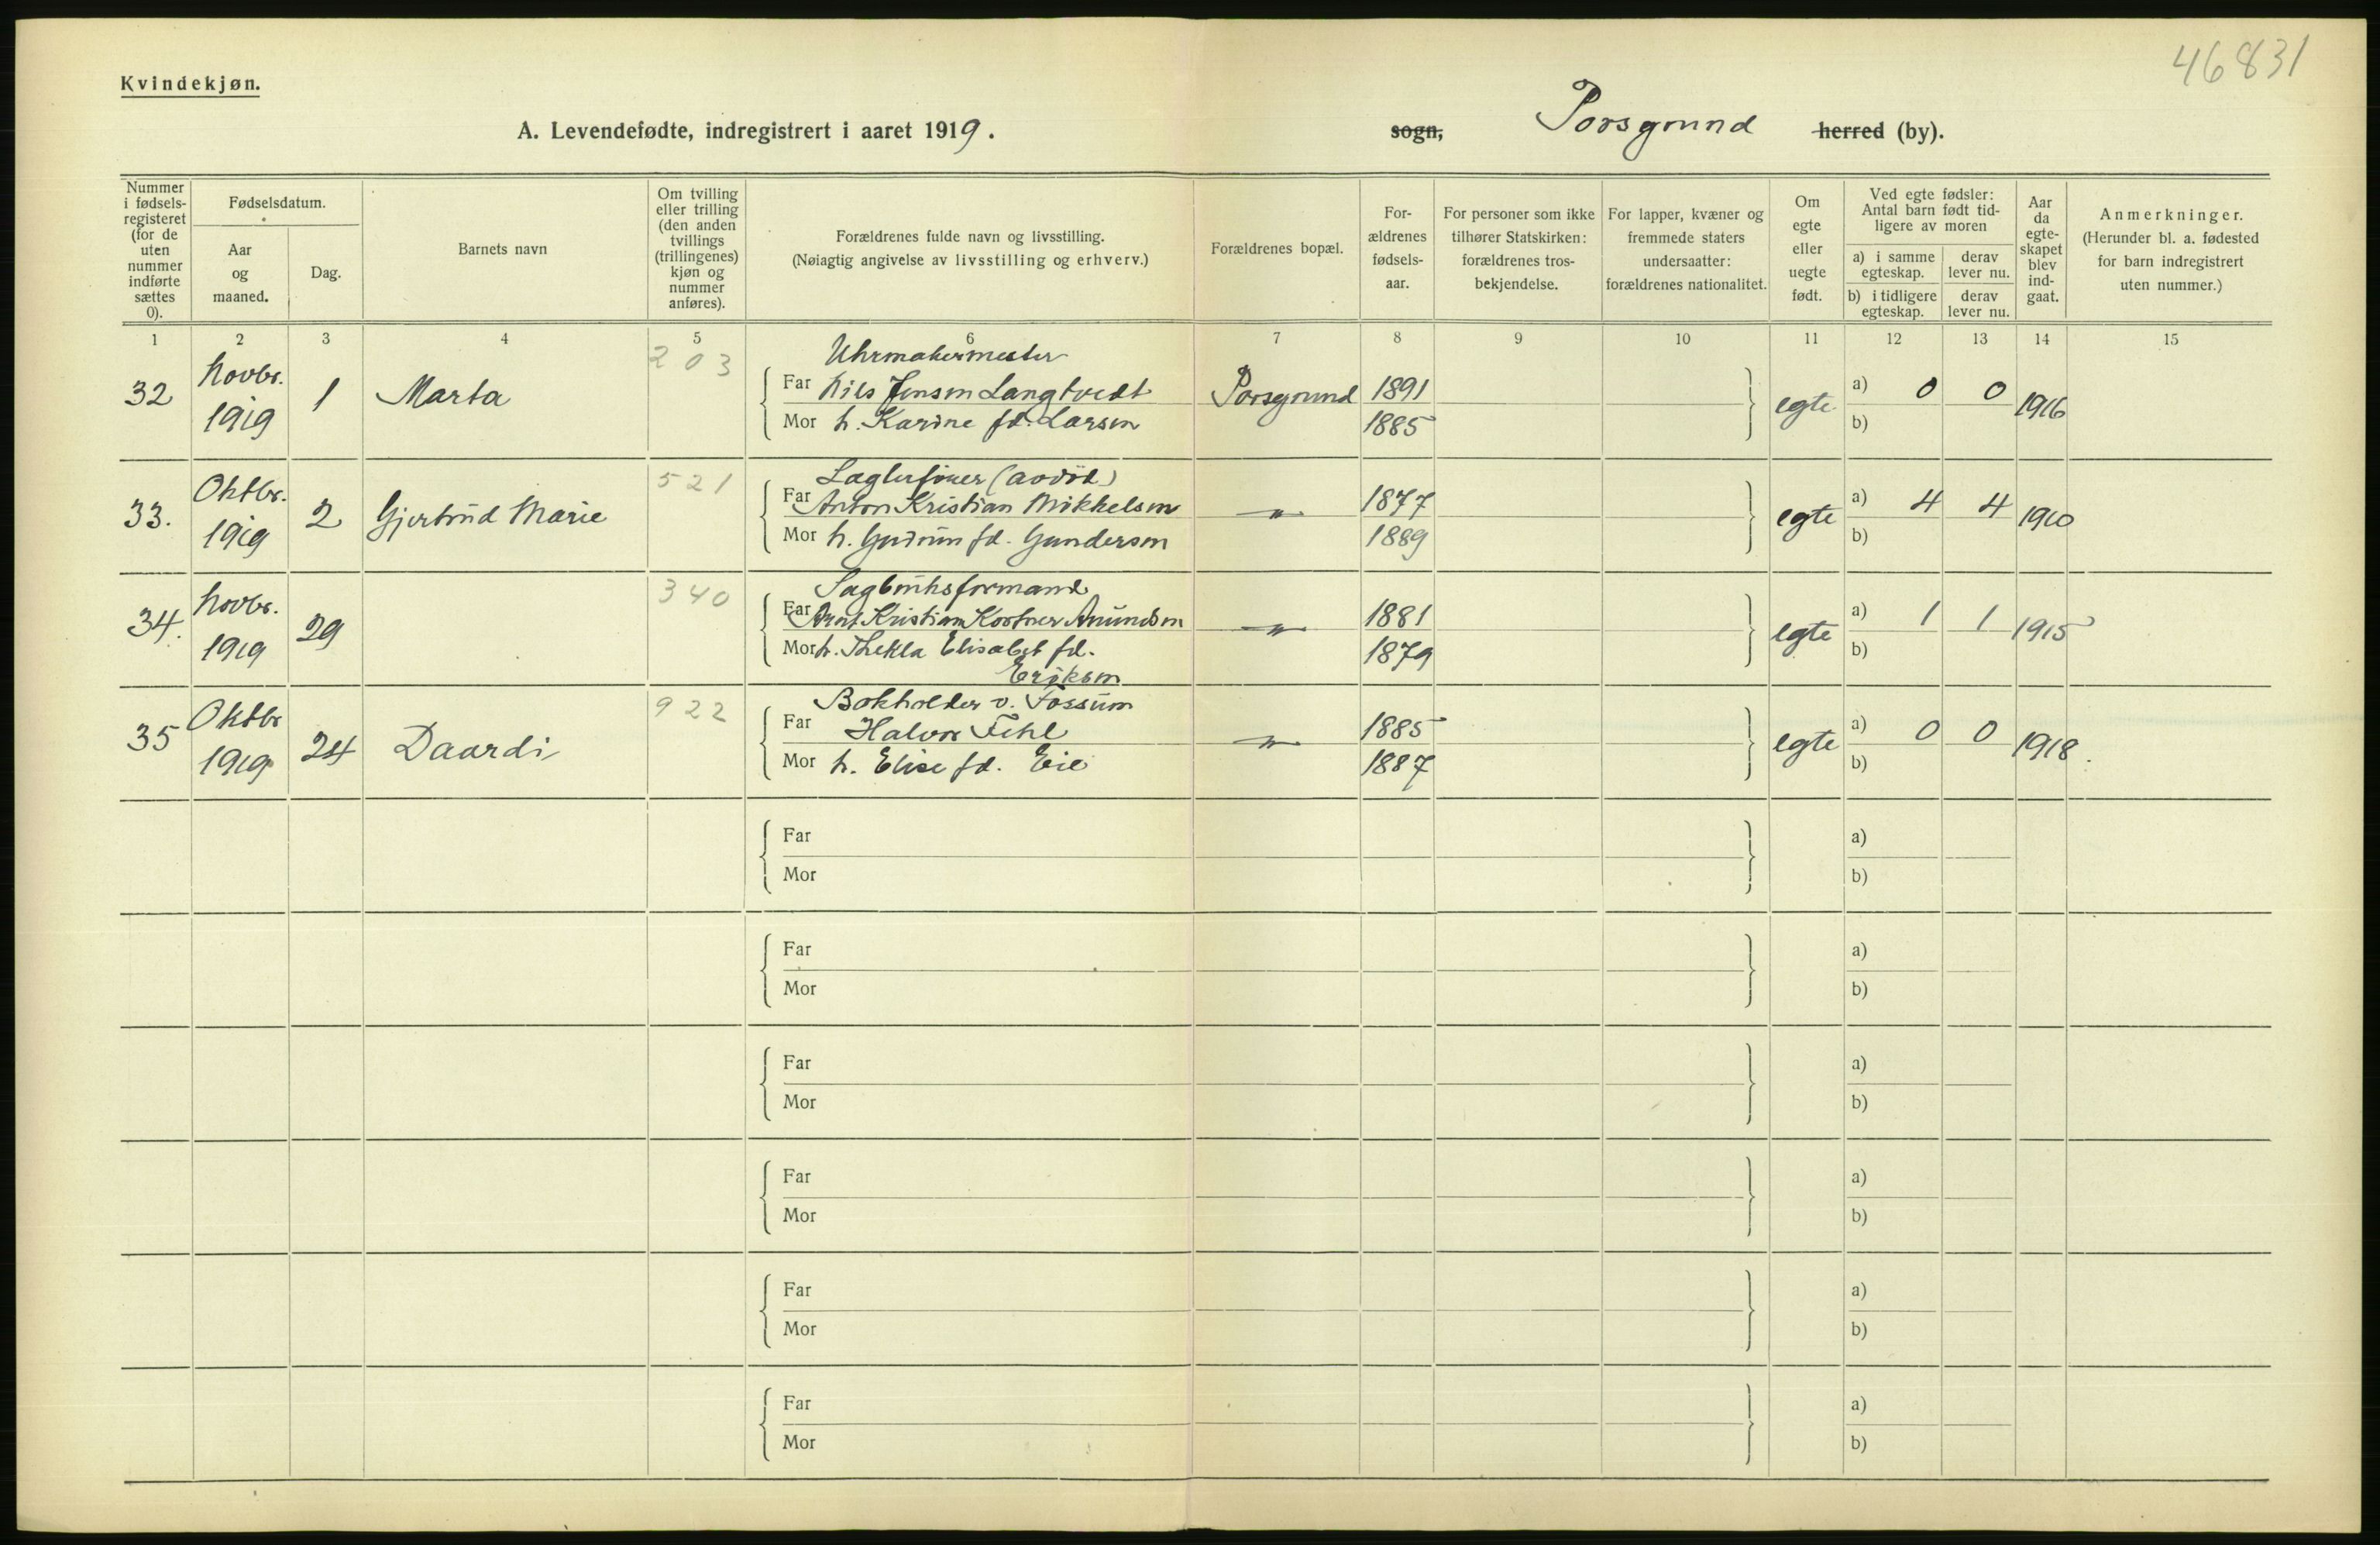 46831
Kvindekjøn.
A. Levendefødte, indregistrert i aaret 1919. sogn, Porsgrund herred (by).
Nummer i fødselsregisteret (for de uten nummer indførte sættes 0).
Fødselsdatum.
Aar og maaned.
Dag.
Barnets navn
Om tvilling eller trilling (den anden tvillings (trillingenes) kjøn og nummer anføres).
Forældrenes fulde navn og livsstilling.
(Nøiagtig angivelse av livsstilling og erhverv.)
Forældrenes bopæl.
Forældrenes fødselsaar.
For personer som ikke tilhører Statskirken: forældrenes trosbekjendelse.
For lapper, kvæner og fremmede staters undersaatter: forældrenes nationalitet.
Om egte eller uegte født.
Ved egte fødsler: Antal barn født tidligere av moren
a) i samme egteskap.
derav lever nu.
b) i tidligere egteskap.
derav lever nu.
Aar da egteskapet blev indgaat.
Anmerkninger.
(Herunder bl. a. fødested for barn indregistrert uten nummer.)
1 2 3 4 5 6 7 8 9 10 11 12 13 14 15
203 Uhrmakermester
32 Novbr. 1919 1 Marta Far Nils Jensen Langtvedt Porsgrund 1891 egte a) 0 0 1916
Mor h. Karine fd. Larsen 1885 b)
521 (avdöd)
33. Oktbr. 1919 2 Gjertrud Marie Far Anton Kristian Mikkelsen —"— 1877 egte a) 4 4 1910
Mor h. Gudrun fd. Gundersen 1889 b)
340 Sagbruksformand
34. Novbr. 1919 29 Far Kristian Amundsen —"— 1881 egte a) 1 1 1915
Mor h. Thekla Elisabet fd. 1879 b)
Eriksen
922 Bokholder v. Fossum
35 Oktbr 1919 24 Daardi Far Halvor Fehl —"— 1885 egte a) 0 0 1918.
Mor h. Elise fd. Eie 1887 b)
Far a)
Mor b)
Far a)
Mor b)
Far a)
Mor b)
Far a)
Mor b)
Far a)
Mor b)
Far a)
Mor b)